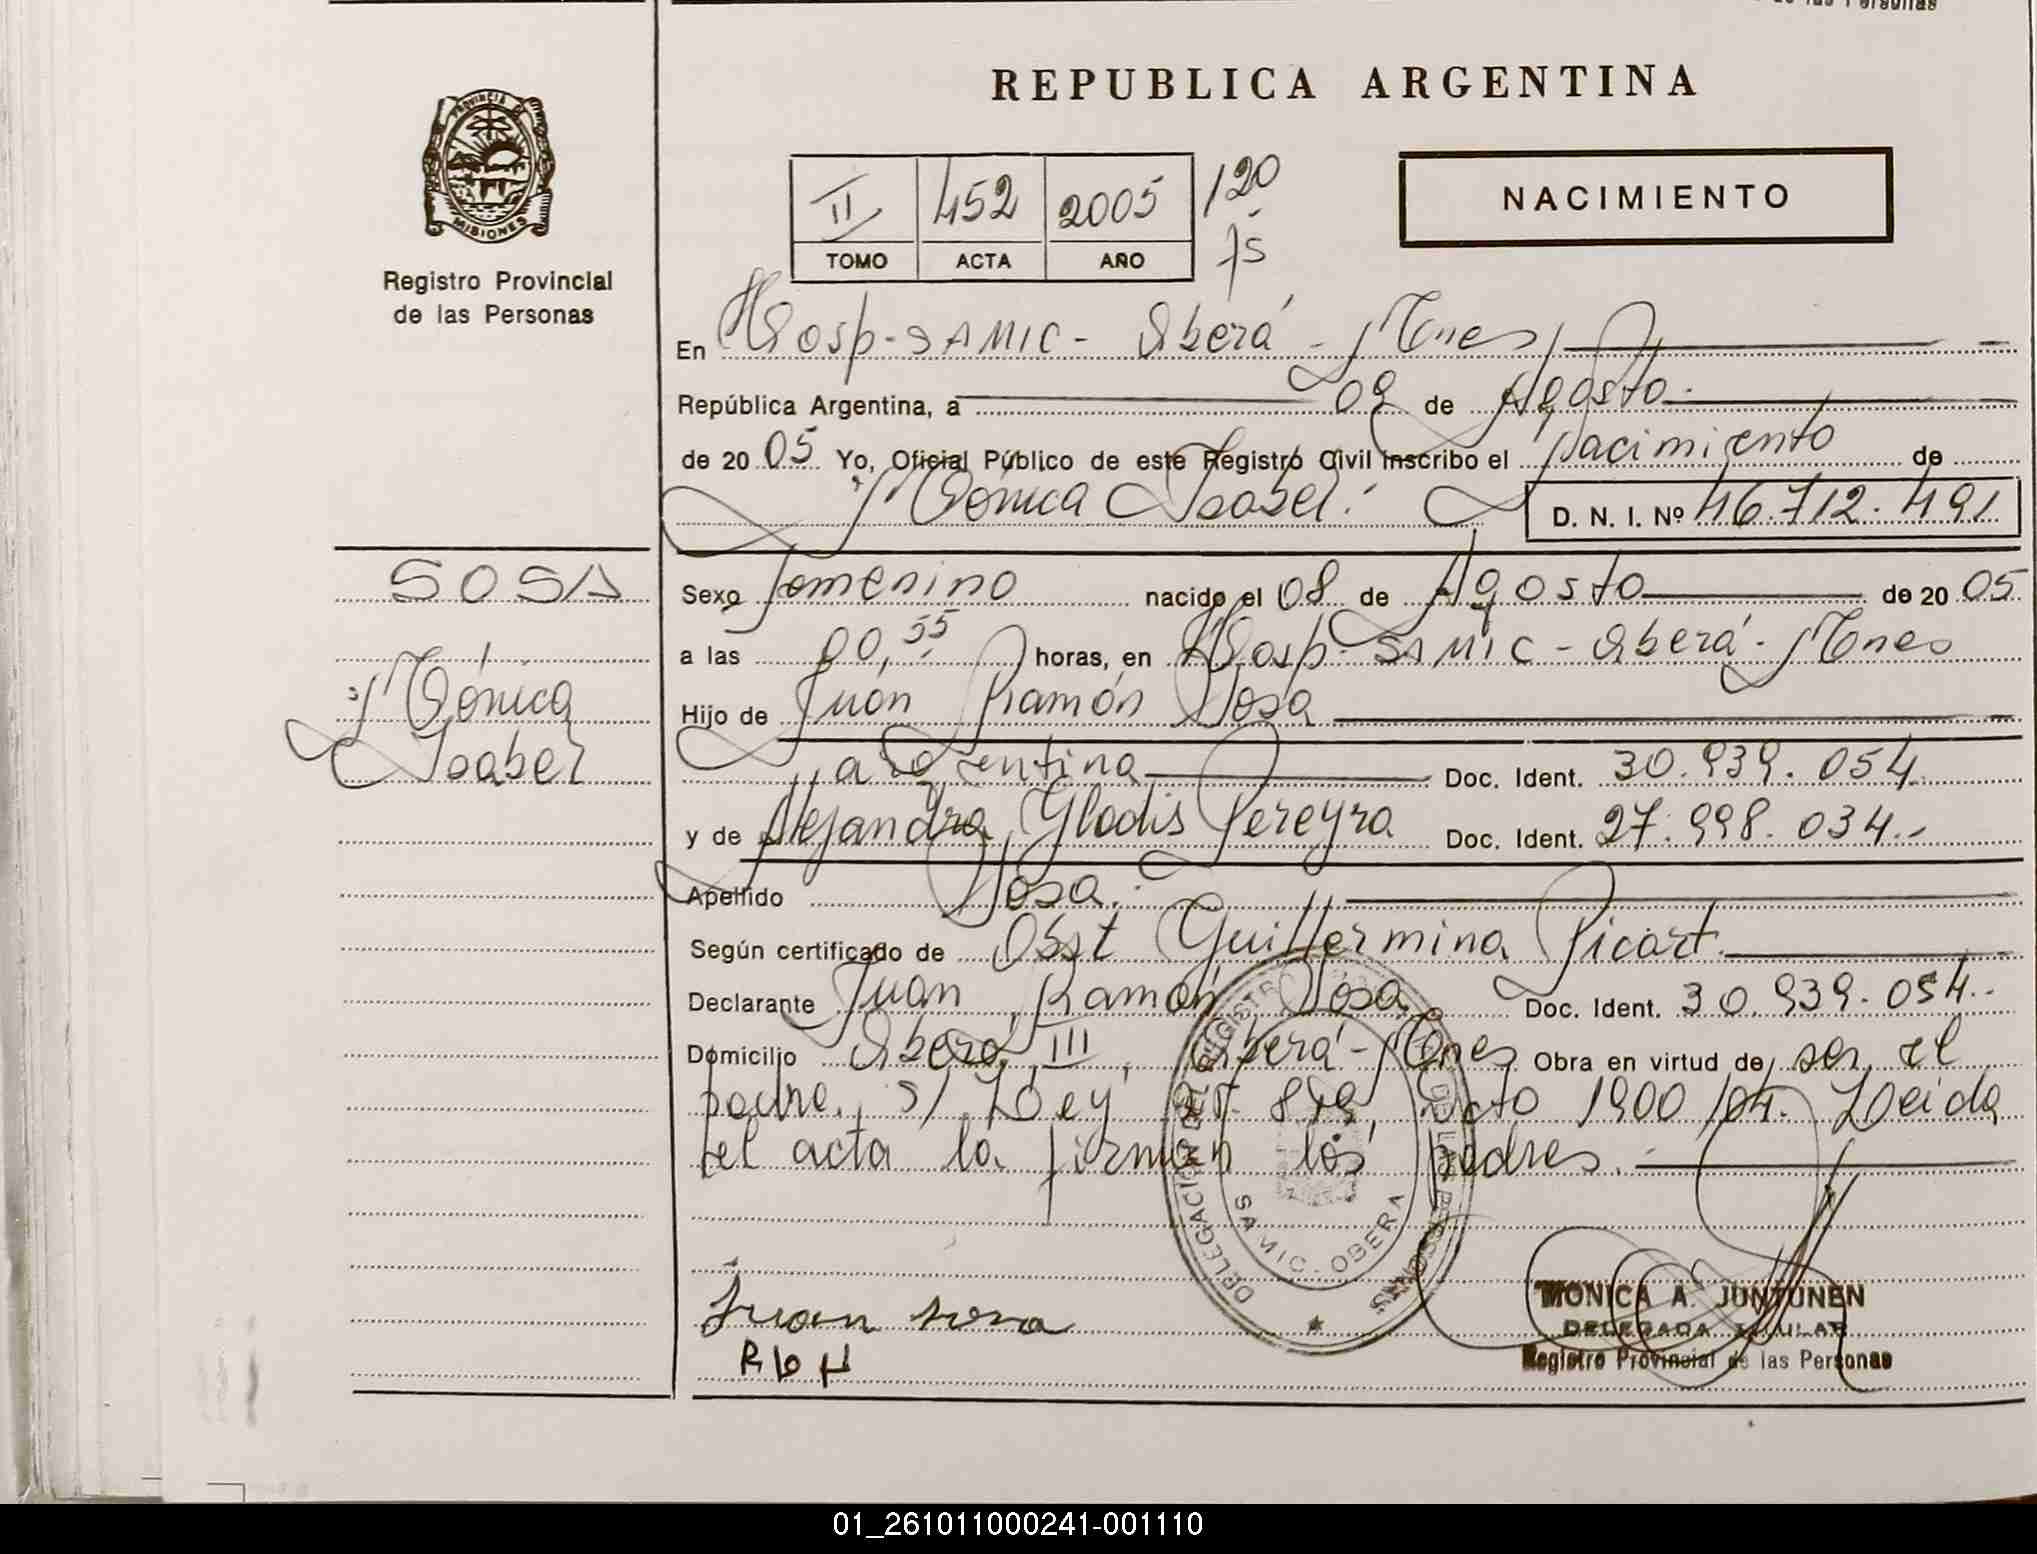 de las Personas
REPUBLICA ARGENTINA
PROVINCIA DE
MISIONES
Registro Provincial
de las Personas
II 452 2005 120
TOMO ACTA AÑO
NACIMIENTO
En Hosp-SAMIC- Oberá - Mnes
República Argentina, a 09 de Agosto
de 20 05 Yo, Oficial Público de este Registro Civil inscribo el nacimiento de
Mónica Isabel. D. N. I. Nº 46.712.491
SOSA
Mónica
Isabel
Sexo femenino nacido el 08 de Agosto de 20 05
a las 00,55 horas, en Hosp-SAMIC-Oberá-Mnes
Hijo de Juan Ramón Sosa
argentina Doc. Ident. 30.939.054
y de Alejandra Gladis Pereyra Doc. Ident. 27.998.034.-
Apellido Sosa.
Según certificado de Obst Guillermina Picart
Declarante Juan Ramón Sosa Doc. Ident. 30.939.054.-
Domicilio Oberá III, Oberá-Mnes Obra en virtud de ser el
padre. s/ Ley Dcto 1900/04. Leida
el acta la firman los padres.
DELEGACION REGISTRO DE LAS PERSONAS
SAMIC - OBERA
Juan sosa
MONICA A. JUNTUNEN
DELEGADA TITULAR
Registro Provincial de las Personas
01_261011000241-001110